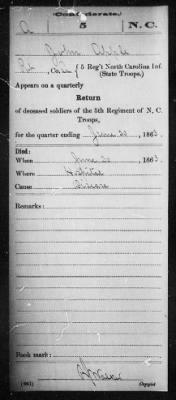 (Confederate.)
A 5 N. C.
John
Co. 5 Reg't North Carolina Inf.
(State Troops.)
Appears on a quarterly
Return
of deceased soldiers of the 5th Regiment of N. C.
Troops,
for the quarter ending June 30, 1863.
Died:
When June 20, 1863.
Where Hospital
Cause Disease
Remarks:
Book mark:
(661) Copyist